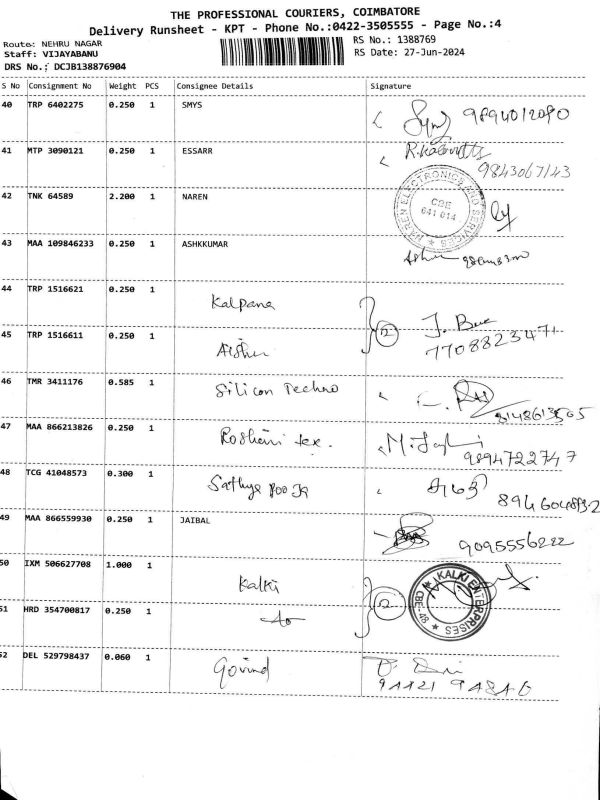 THE PROFESSIONAL COURIERS, COIMBATORE
Delivery Runsheet - KPT - Phone No.:0422-3505555 - Page No.:4
Route: NEHRU NAGAR RS No.: 1388769
Staff: VIJAYABANU RS Date: 27-Jun-2024
DRS No.: DCJB138876904
S No Consignment No Weight PCS Consignee Details Signature
40 TRP 6402275 0.250 1 SMYS 9894012090
41 MTP 3090121 0.250 1 ESSARR 9843067143
42 TNK 64589 2.200 1 NAREN
NAREN ELECTRONICS AND SERVICES
CBE
641 014
43 MAA 109846233 0.250 1 ASHKKUMAR
44 TRP 1516621 0.250 1 Kalpana
45 TRP 1516611 0.250 1 2 7708823471
46 TMR 3411176 0.585 1 Silicon Techno 8148613505
47 MAA 866213826 0.250 1 Roshani tex. 9894722747
48 TCG 41048573 0.300 1 Sathya
49 MAA 866559930 0.250 1 JAIBAL 9095556222
50 IXM 506627708 1.000 1 Kalki
KALKI ENTERPRISES CBE-48
51 HRD 354700817 0.250 1 2
52 DEL 529798437 0.060 1 Govind